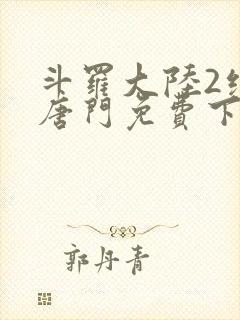 斗羅大陸2
唐門免費下
郭丹青